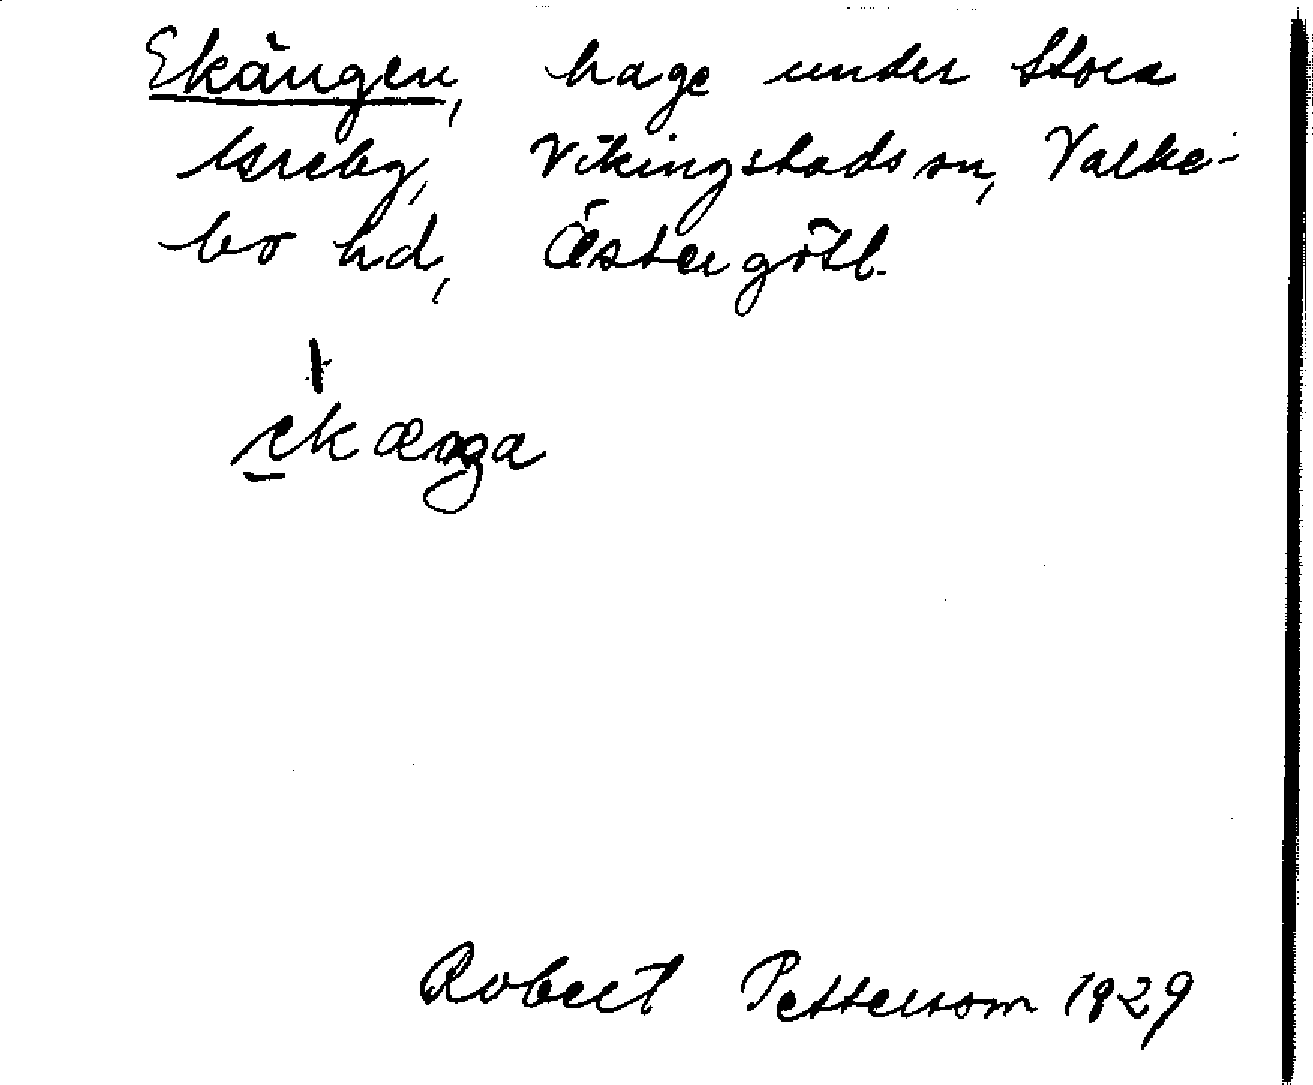 Ekängen, hage under Stora
Greby, Vikingstads sn, Valke-
bo hd, Östergötl.
ekænga
Robert Pettersson 1929